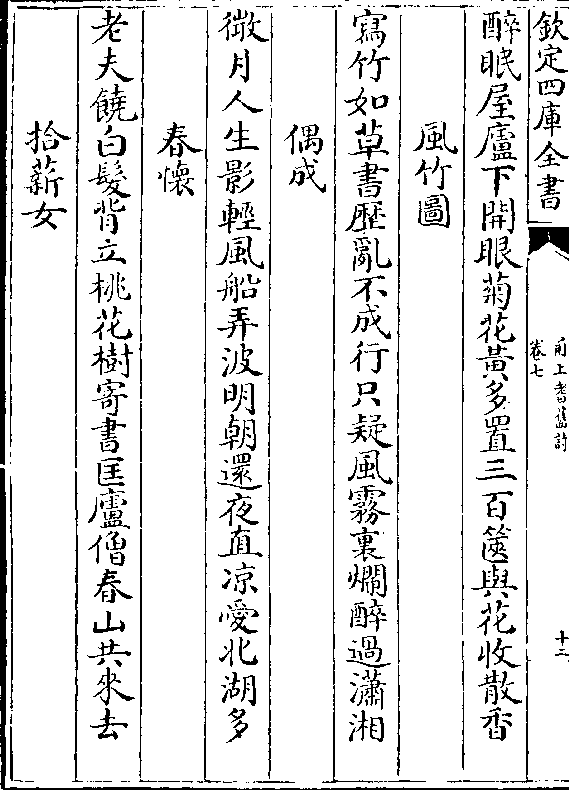 欽定四庫全書
甬上耆舊詩
卷七
十二
醉眠屋廬下開眼菊花黃多置三百篋與花收散香
風竹圖
寫竹如草書歷亂不成行只疑風霧裏爛醉過瀟湘
偶成
微月人生影輕風船弄波明朝還夜直凉愛北湖多
春懷
老夫饒白髮背立桃花樹寄書匡廬僧春山共來去
拾薪女